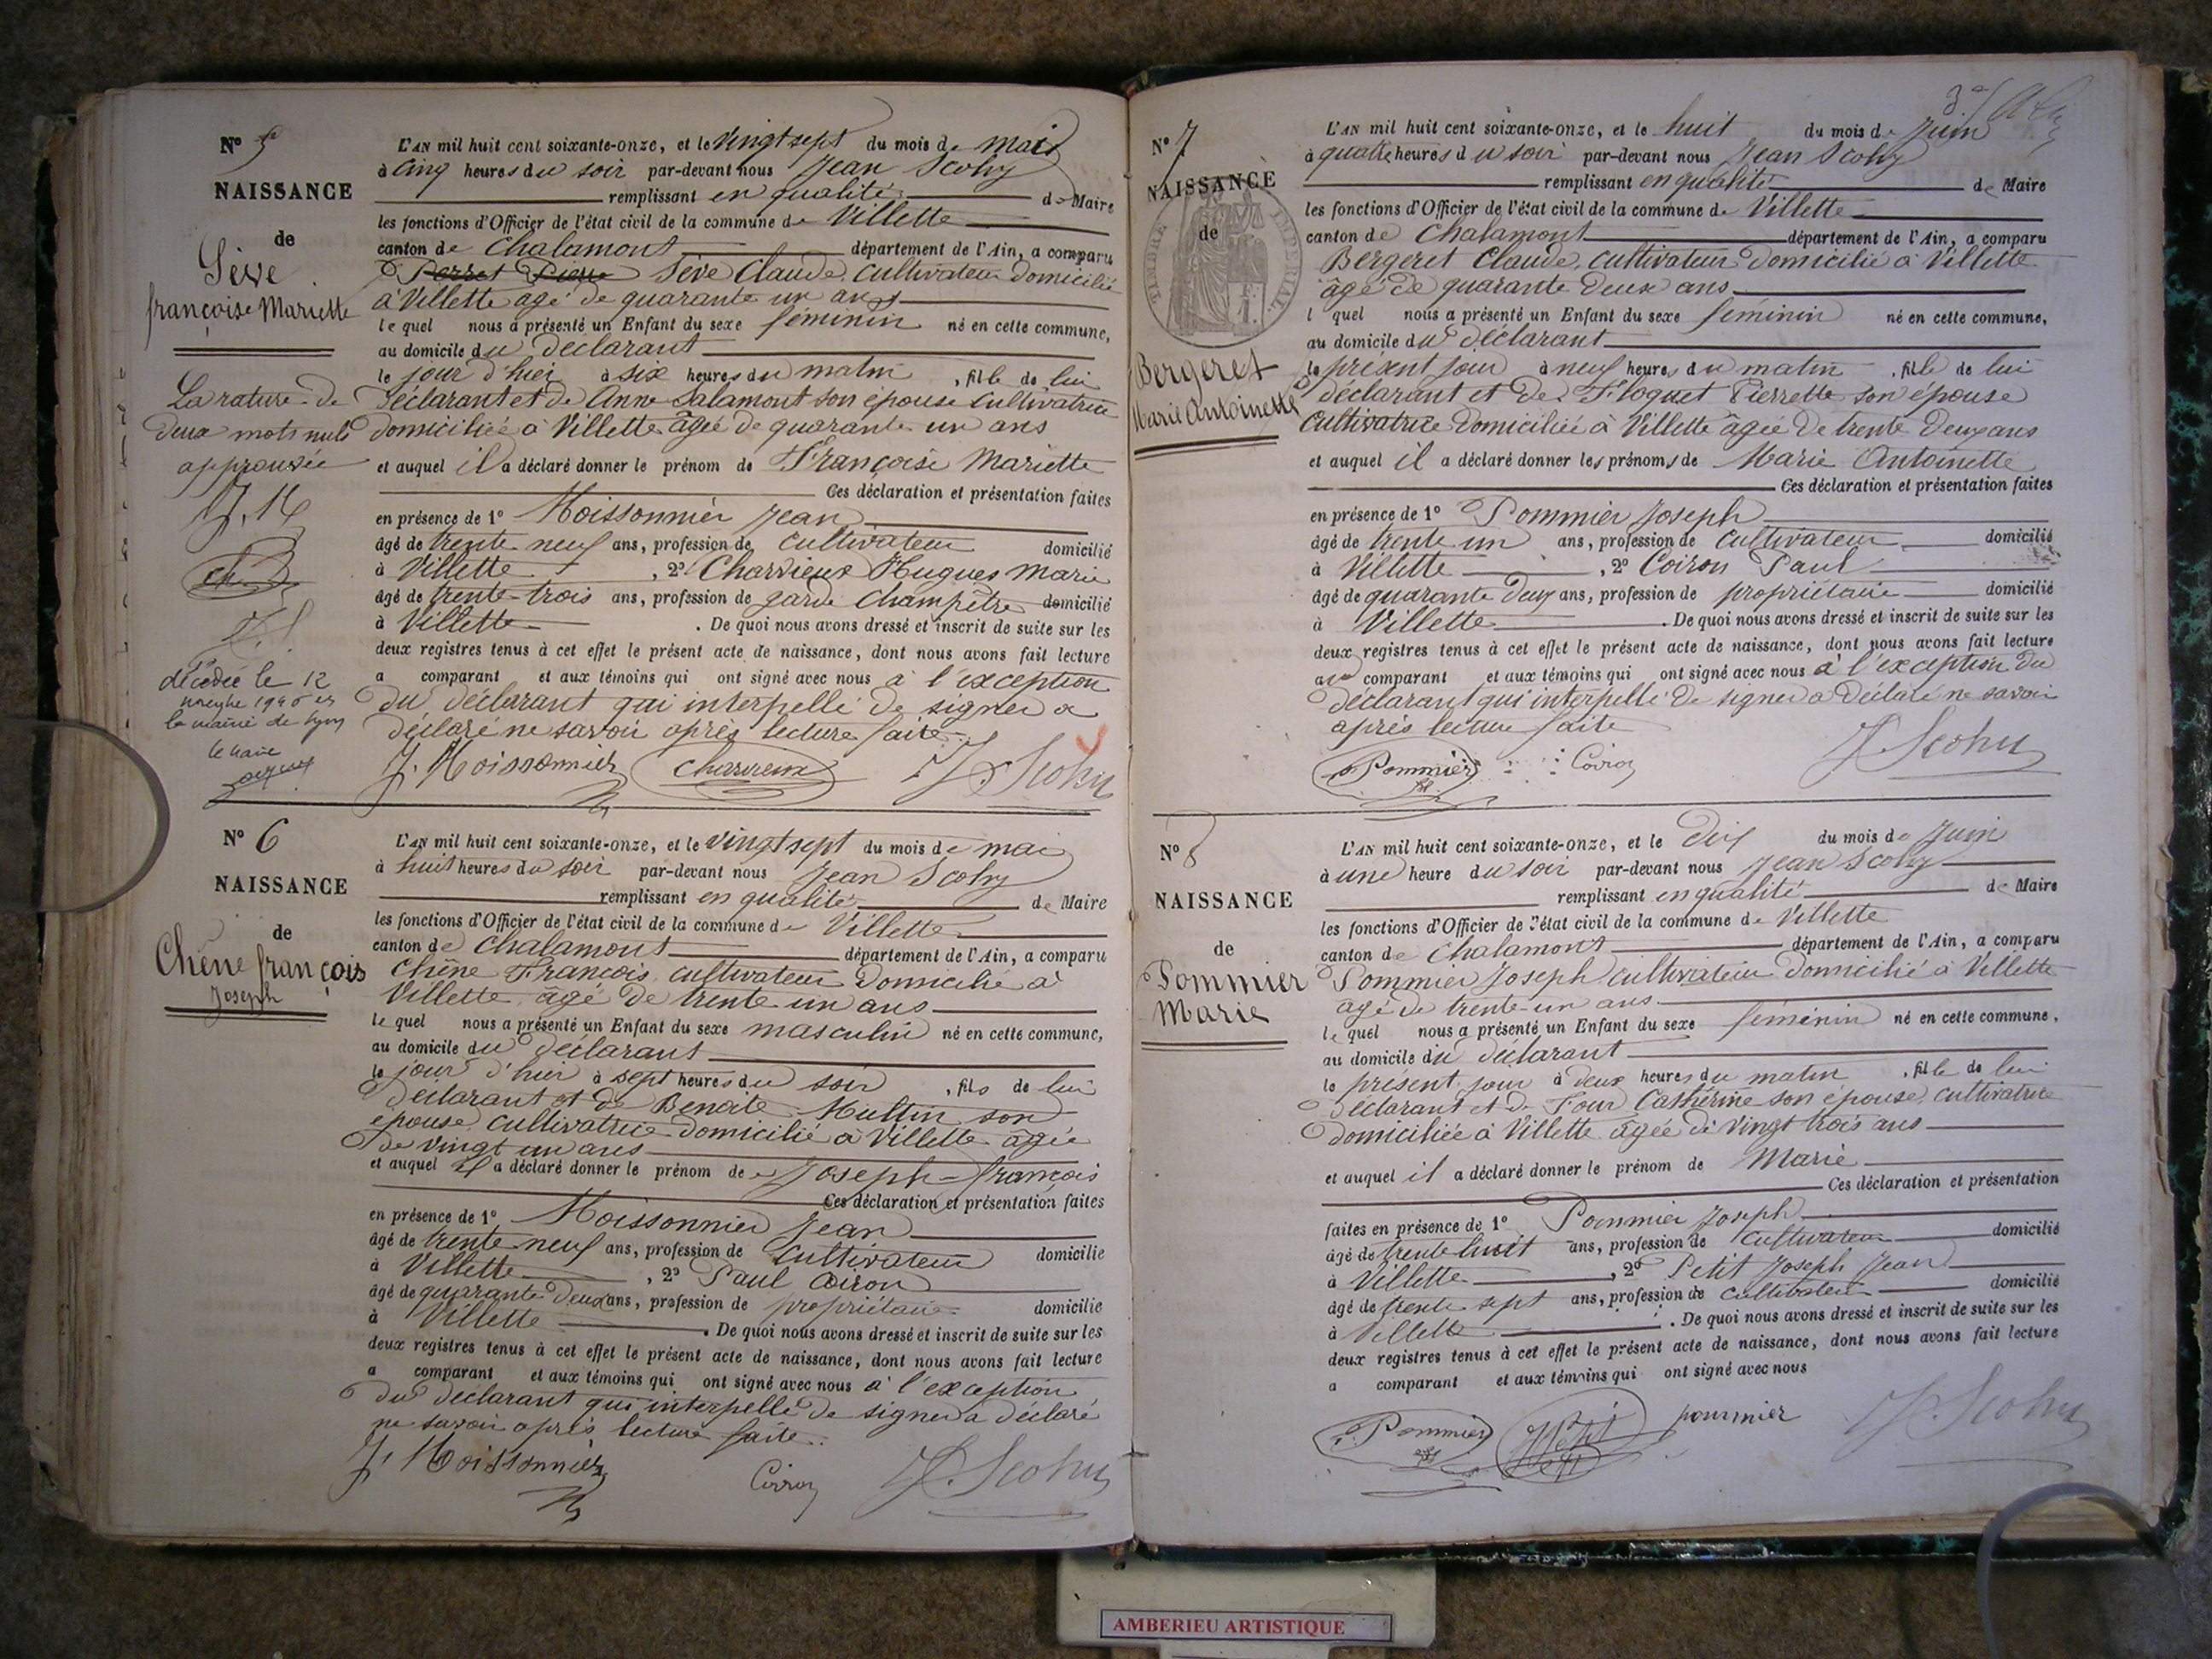 N° 5
NAISSANCE
de
Sève
françoise Mariette
La rature de
deux mots nuls
approuvée
J. M
Ch
décédée le 12
la mairie de Lyon
L'AN mil huit cent soixante-onze, et le Vingt sept du mois de mai
à cinq heures du soir par-devant nous Jean Scohy
remplissant en qualité de Maire
les fonctions d'Officier de l'état civil de la commune de Villette
canton de Chalamont département de l'Ain, a comparu
Perret Pierre Sève Claude, cultivateur domicilié
à Villette agé de quarante un ans
le quel nous a présenté un Enfant du sexe féminin né en cette commune,
au domicile du déclarant
le jour d'hier à six heures du matin, fille de lui
déclarant et de Anne Salamont son épouse cultivatrice
domiciliée à Villette âgée de quarante un ans
et auquel il a déclaré donner le prénom de Françoise Mariette
Ces déclaration et présentation faites
en présence de 1° Moissonnier Jean
âgé de trente neuf ans, profession de cultivateur domicilié
à Villette, 2° Charvieux Hugues Marie
âgé de trente-trois ans, profession de garde champêtre domicilié
à Villette. De quoi nous avons dressé et inscrit de suite sur les
deux registres tenus à cet effet le présent acte de naissance, dont nous avons fait lecture
a comparant et aux témoins qui ont signé avec nous à l'exception
du déclarant qui interpellé de signer a
déclaré ne savoir après lecture faite
J. Moissonnier Charvieux J. Scohy
N° 6
NAISSANCE
de
Chêne françois
Joseph
L'AN mil huit cent soixante-onze, et le vingt sept du mois de mai
à huit heures du soir par-devant nous Jean Scohy
remplissant en qualité de Maire
les fonctions d'Officier de l'état civil de la commune de Villette
canton de Chalamont département de l'Ain, a comparu
Chêne François, cultivateur domicilié à
Villette, âgé de trente un ans
le quel nous a présenté un Enfant du sexe masculin né en cette commune,
au domicile du déclarant
le jour d'hier à sept heures du soir, fils de lui
déclarant et de Benoîte Muttin son
épouse, cultivatrice domicilié à Villette âgée
de vingt un ans
et auquel il a déclaré donner le prénom de Joseph-françois
Ces déclaration et présentation faites
en présence de 1° Moissonnier Jean
âgé de trente neuf ans, profession de cultivateur domicilié
à Villette, 2° Paul Coiron
âgé de quarante deux ans, profession de propriétaire domicilié
à Villette. De quoi nous avons dressé et inscrit de suite sur les
deux registres tenus à cet effet le présent acte de naissance, dont nous avons fait lecture
a comparant et aux témoins qui ont signé avec nous à l'exception
du déclarant qui interpellé de signer a déclaré
ne savoir après lecture faite.
J. Moissonnier Coiron J. Scohy
N° 7
NAISSANCE
de
TIMBRE IMPERIAL
Bergeret
Marie Antoinette
L'AN mil huit cent soixante-onze, et le huit du mois de Juin
à quatre heures du soir par-devant nous Jean Scohy
remplissant en qualité de Maire
les fonctions d'Officier de l'état civil de la commune de Villette
canton de Chalamont département de l'Ain, a comparu
Bergeret Claude, cultivateur domicilié à Villette
âgé de quarante deux ans
l quel nous a présenté un Enfant du sexe féminin né en cette commune,
au domicile du déclarant
le présent jour à neuf heures du matin, fille de lui
déclarant et de Floquet Pierrette son épouse
cultivatrice domiciliée à Villette âgée de trente deux ans
et auquel il a déclaré donner les prénoms de Marie Antoinette
Ces déclaration et présentation faites
en présence de 1° Pommier Joseph
âgé de trente un ans, profession de cultivateur domicilié
à Villette, 2° Coiron Paul
âgé de quarante deux ans, profession de propriétaire domicilié
à Villette. De quoi nous avons dressé et inscrit de suite sur les
deux registres tenus à cet effet le présent acte de naissance, dont nous avons fait lecture
au comparant et aux témoins qui ont signé avec nous à l'exception du
déclarant qui interpellé de signer a déclaré ne savoir
après lecture faite
Pommier Coiron J. Scohy
N° 8
NAISSANCE
de
Pommier
Marie
L'AN mil huit cent soixante-onze, et le dix du mois de Juin
à une heure du soir par-devant nous Jean Scohy
remplissant en qualité de Maire
les fonctions d'Officier de l'état civil de la commune de Villette
canton de Chalamont département de l'Ain, a comparu
Pommier Joseph cultivateur domicilié à Villette
agé de trente-un ans
le quel nous a présenté un Enfant du sexe féminin né en cette commune,
au domicile du déclarant
le présent jour à deux heures du matin, fille de lui
déclarant et de Four Cathérine son épouse, cultivatrice
domiciliée à Villette âgée de vingt trois ans
et auquel il a déclaré donner le prénom de Marie
Ces déclaration et présentation
faites en présence de 1° Pommier Joseph
âgé de trente huit ans, profession de cultivateur domicilié
à Villette, 2° Petit Joseph Jean
âgé de trente sept ans, profession de cultivateur domicilié
à Villette. De quoi nous avons dressé et inscrit de suite sur les
deux registres tenus à cet effet le présent acte de naissance, dont nous avons fait lecture
a comparant et aux témoins qui ont signé avec nous
Pommier Petit pommier J. Scohy
AMBERIEU ARTISTIQUE